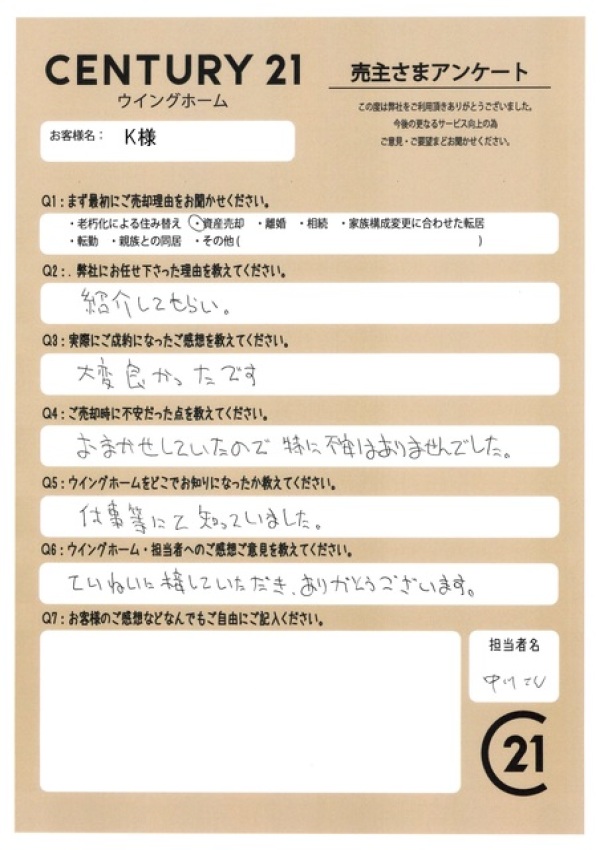 CENTURY 21
ウイングホーム
売主さまアンケート
この度は弊社をご利用頂きありがとうございました。
今後の更なるサービス向上の為
ご意見・ご要望までお聞かせください。
お客様名： K様
Q1：まず最初にご売却理由をお聞かせください。
・老朽化による住み替え ・資産売却 ・離婚 ・相続 ・家族構成変更に合わせた転居
・転勤 ・親族との同居 ・その他 ( )
Q2：. 弊社にお任せ下さった理由を教えてください。
紹介してもらい。
Q3：実際にご成約になったご感想を教えてください。
大変良かったです
Q4：ご売却時に不安だった点を教えてください。
おまかせしていたので 特に不安はありませんでした。
Q5：ウイングホームをどこでお知りになったか教えてください。
仕事等にて知っていました。
Q6：ウイングホーム・担当者へのご感想ご意見を教えてください。
ていねいに接していただき、ありがとうございます。
Q7：お客様のご感想などなんでもご自由にご記入ください。
担当者名
中川さん
C21